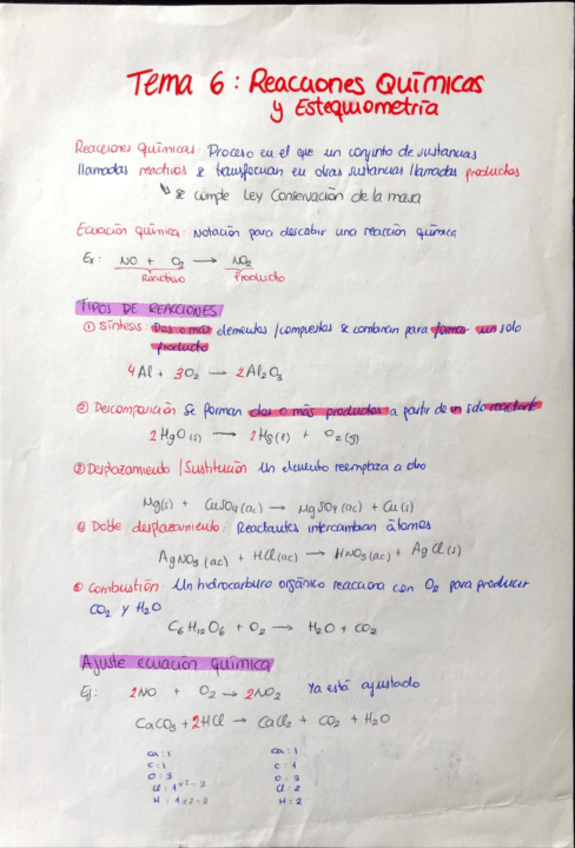 Tema 6: Reacciones Químicas
y Estequiometría
Reacciones químicas: Proceso en el que un conjunto de sustancias
llamadas reactivos se transforman en otras sustancias llamadas productos
↳ se cumple Ley Conservación de la masa
Ecuación química: Notación para describir una reacción química
Ex: NO + O₂ → NO₂
Reactivo Producto
TIPOS DE REACCIONES
① Síntesis: Dos o más elementos/compuestos se combinan para formar un solo
producto
4Al + 3O₂ → 2Al₂O₃
② Descomposición Se forman dos o más productos a partir de un solo reactante
2HgO(s) → 2Hg(l) + O₂(g)
③ Desplazamiento / Sustitución Un elemento reemplaza a otro
Mg(s) + CuSO₄(ac) → MgSO₄(ac) + Cu(s)
④ Doble desplazamiento: Reactantes intercambian átomos
AgNO₃(ac) + HCl(ac) → HNO₃(ac) + AgCl(s)
⑤ Combustión: Un hidrocarburo orgánico reacciona con O₂ para producir
CO₂ y H₂O
C₆H₁₂O₆ + O₂ → H₂O + CO₂
Ajuste ecuación química
Ej: 2NO + O₂ → 2NO₂ Ya está ajustado
CaCO₃ + 2HCl → CaCl₂ + CO₂ + H₂O
Ca: 1 Ca: 1
C: 1 C: 1
O: 3 O: 3
Cl: 1 x2 = 2 Cl: 2
H: 1 x2 = 2 H: 2